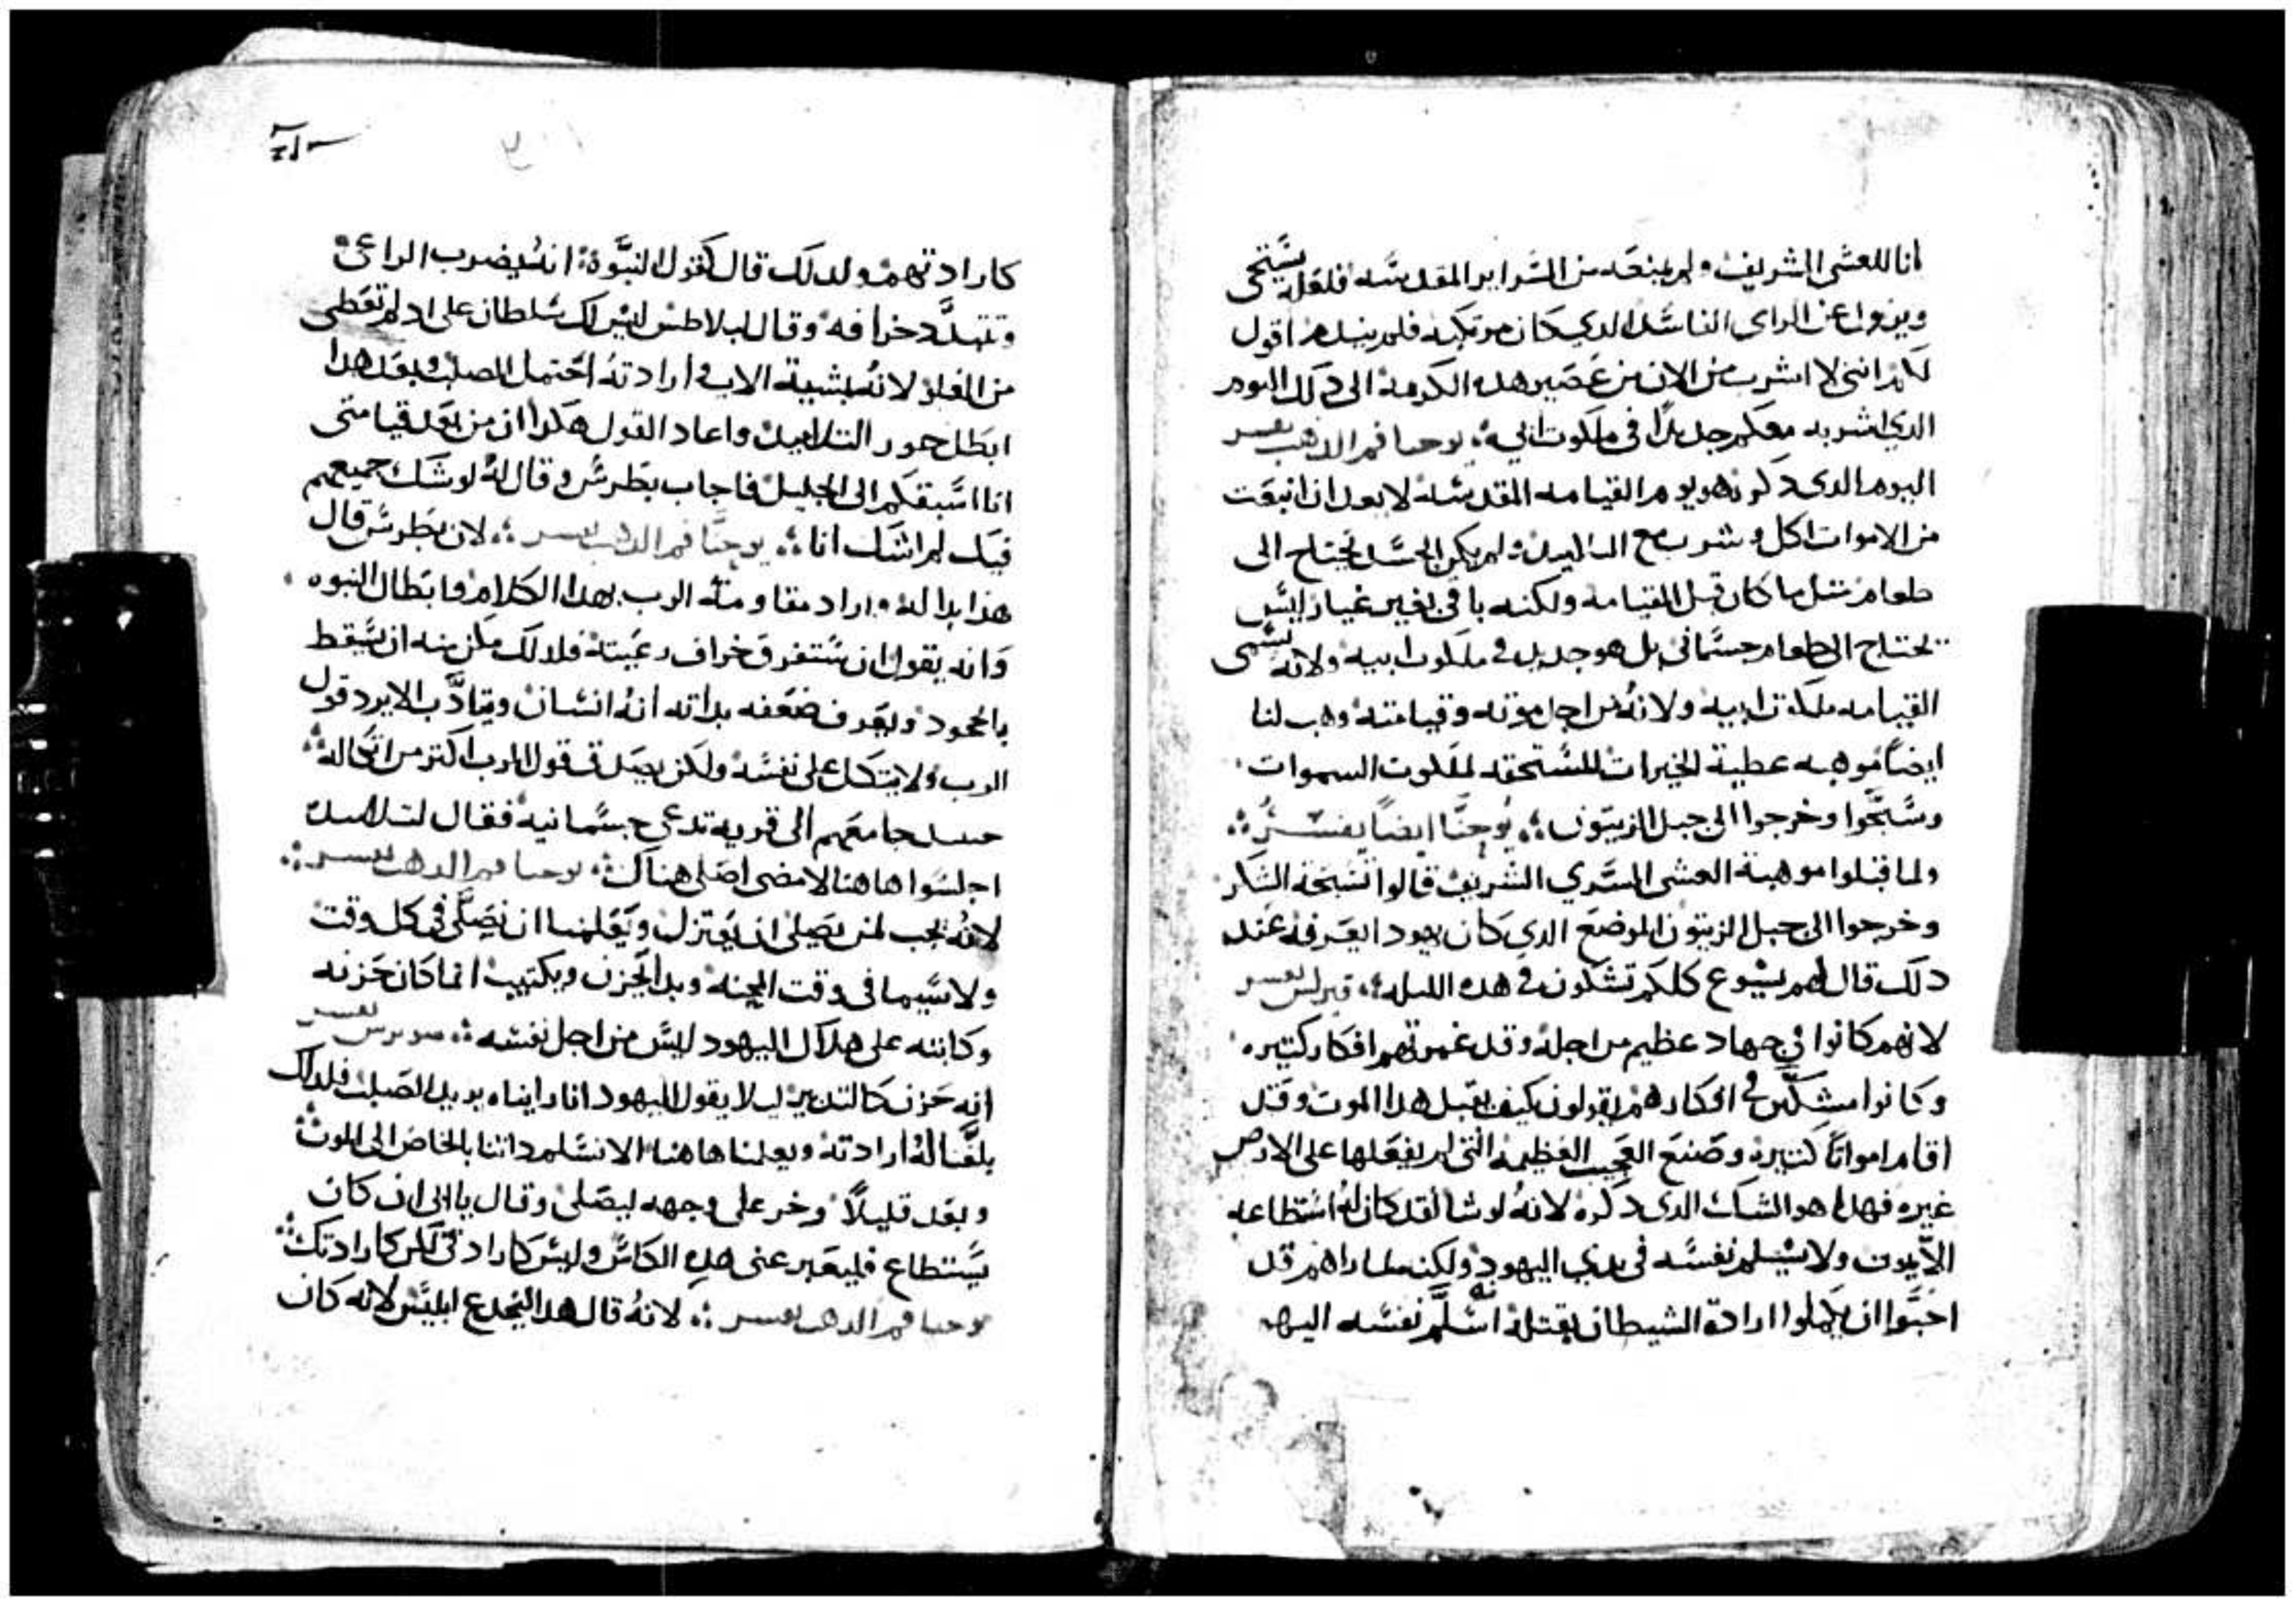 انا للعشى الشريف ولم يمنعه من السراير المقدسه فلعله يستحى
وينزوا عن الراى الفاسد الدي كان مرتكبه فلم يندم اقول
لكم اننى لا اشرب من الان من عصير هده الكرمه الى دلك اليوم
الدي اشربه معكم جديدًا فى ملكوت ابي يوحنا فم الدهب يفسر
اليوم الدى دكره هو يوم القيامه المقدسه لا بعد ان انبعت
من الاموات اكل وشرب مع التلاميد ولم يكن الجسد يحتاج الى
طعام متل ما كان قبل القيامه ولكنه باقى بغير غيار ليس
يحتاج الى طعام جسمانى بل هو جديد فى ملكوت ابيه ولانه يسمى
القيامه ملكوت ابيه ولانه من اجل موته وقيامته وهب لنا
ايضاً موهبه عطية الخيرات المستحقه لملكوت السموات
وسبحوا وخرجوا الى جبل الزيتون يوحنّا ايضاً يفسّر
ولما قبلوا موهبة العشى السري الشريف قالوا تسبحة الشكر
وخرجوا الى جبل الزيتون الموضع الدي كان يهودا يعرفه عند
دلك قال لهم يسوع كلكم تشكون فى هده الليله قيرلس يفسر
لانهم كانوا فى جهاد عظيم من اجله وقد غمرتهم افكار كتيره
وكانوا مشكّين فى افكارهم يقولون كيف يقبل هدا الموت وقد
اقام امواتاً كتيره وصنع العجيب العظيمه التى لم يفعلها على الارض
غيره فهدا هو الشك الدى دكره لانه لو شا لقد كان له استطاعه
الّا يموت ولا يسلم نفسه فى يدي اليهود ولكنه لما راهم قد
احبّوا ان يكملوا ارادة الشيطان بقتله اسلّم نفسه اليهم
كارادتهم ولدلك قال كقول النبوة انه يضرب الراعى
وتتبدّد خرافه وقال لبلاطس ليس لك سلطان على اد لم تعطى
من العلو لانه بمشية الاب وارادته احتمل الصلب وبعد هدا
ابطل حور التلاميد واعاد القول هكدا ان من بعد قيامتى
انا اسبقكم الى الجليل فاجاب بطرس وقال له لو شك جميعهم
فيك لم اشك انا يوحنّا فم الدهب يفسر لان بطرس قال
هدا بداله واراد مقاومة الرب بهدا الكلام وابطال النبوه
وانه يقول ان ستفرق خراف رعيته فلدلك مكن منه ان يسقط
بالجحود ويعرف ضعفه بداته انه انسان ويتادّب الا يرد قول
الرب ولا يتكل على نفسه ولكن يصدق قول الرب اكتر من اتكاله
حينيد جا معهم الى قريه تدعى جسمانيه فقال لتلاميده
اجلسوا هاهنا لامضى اصلى هناك يوحنا فم الدهب يفسر
لانه يجب لمن يصلى ان يعتزل ويعلمنا ان نصلّى فى كل وقت
ولا سيما فى وقت المحنه وبدا يحزن ويكتيب انما كان حزنه
وكابته على هلاك اليهود ليس من اجل نفسه سويرس يفسر
انه حزن كالتدبير ليلا يقول اليهود انا رايناه يريد الصلب فلدلك
بلّغنا له ارادته ويعلمنا هاهنا الا نسلم داتنا بالخاص الى الموت
وبعد قليلاً وخر على وجهه ليصلى وقال يا ابى ان كان
يستطاع فليعبر عنى هده الكاس وليس كارادتى لكن كارادتك
يوحنا فم الدهب يفسر لانه قال هدا ليخدع ابليس لانه كان